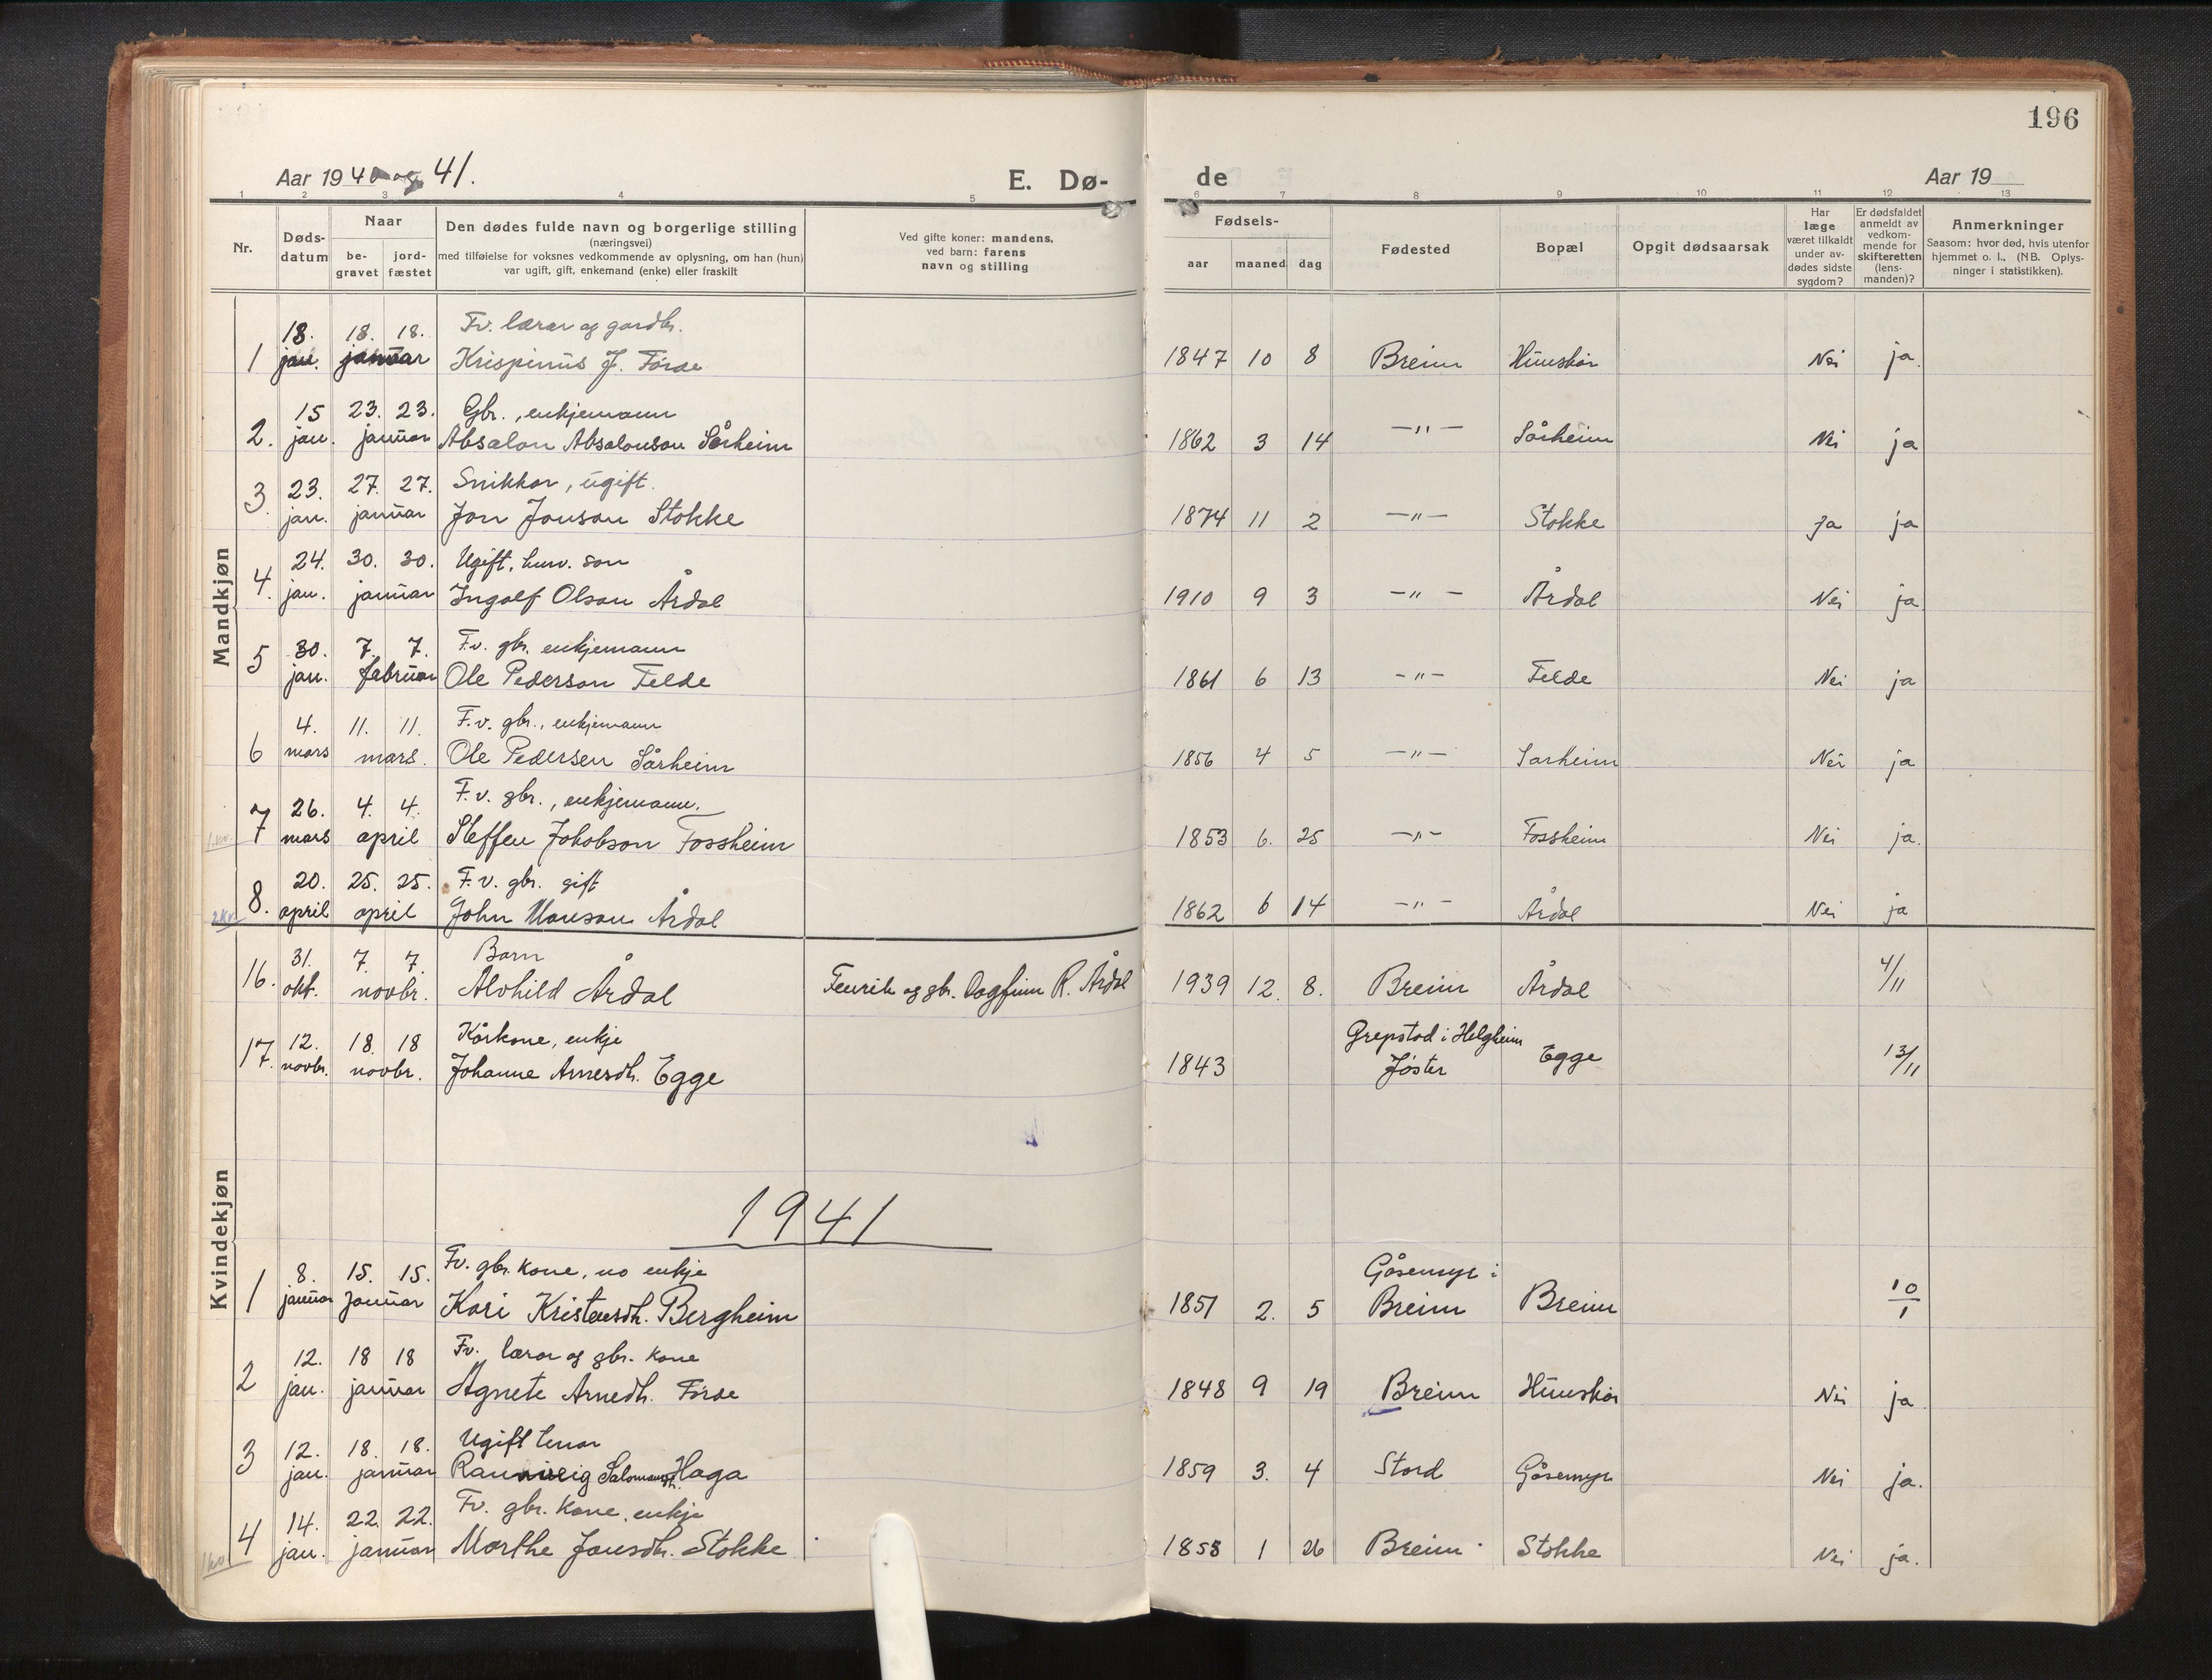 196
Aar 1940 og 41.
E. Dø-
de
Aar 19
1 2 3 4 5 6 7 8 9 10 11 12 13
Nr.
Døds-
datum
Naar
be-
gravet
jord-
fæstet
Den dødes fulde navn og borgerlige stilling
(næringsvei)
med tilføielse for voksnes vedkommende av oplysning, om han (hun)
var ugift, gift, enkemand (enke) eller fraskilt
Ved gifte koner: mandens,
ved barn: farens
navn og stilling
Fødsels-
aar maaned dag
Fødested
Bopæl
Opgit dødsaarsak
Har
læge
været tilkaldt
under av-
dødes sidste
sygdom?
Er dødsfaldet
anmeldt av
vedkom-
mende for
skifteretten
(lens-
manden)?
Anmerkninger
Saasom: hvor død, hvis utenfor
hjemmet o. l., (NB. Oplys-
ninger i statistikken).
Mandkjøn
18. 18. 18. Fv. lærar og gardbr.
1 jan. januar Krispinus J. Førde 1847 10 8 Breim Hunskår Nei ja.
15 23. 23. Gbr., enkjemann
2. jan. januar Absalon Absalonson Sårheim 1862 3 14 -"- Sårheim Nei ja
3 23. 27. 27. Snikkar, ugift.
jan. januar Jon Jonson Stokke 1874 11 2 -"- Stokke Ja ja
24. 30. 30. Ugift, son
4. jan. januar Ingolf Olson Årdal 1910 9 3 -"- Årdal Nei ja
30. 7. 7. F.v. gbr. enkjemann
5 jan. februar Ole Pederson Felde 1861 6 13 -"- Felde Nei ja
4. 11. 11. F.v. gbr., enkjemann
6 mars mars. Ole Pedersen Sårheim 1856 4 5 -"- Sarheim Nei ja
26. 4. 4. F.v. gbr., enkjemann.
7 mars april Steffen Jakobson Fossheim 1853 6. 25 -"- Fossheim Nei ja.
20. 25. 25. F.v. gbr. gift
8. april april John Hanson Årdal 1862 6 14 -"- Årdal Nei ja
Kvindekjøn
31. 7. 7. Barn
16. okt. novbr. Alvhild Årdal Fenrik og gbr. Dagfinn R. Årdal 1939 12. 8. Breim Årdal 4/11
12. 18. 18 Kårkone, enkje Grepstad i Helgheim
17. novbr. novbr. Johanne Arnesdh. Egge 1843 Jøster Egge 13/11
1941
8. 15. 15. Fv. gbr. kone, no enkje Gåsemyr i
1 januar januar Kari Kristensdh. Bergheim 1851 2. 5 Breim Breim 10/1
12. 18 18 Fv. lærar og gbr. kone
2 jan. januar Agnete Arnedh. Førde 1848 9 19 Breim Hunskår Nei ja
3 12. 18. 18. Ugift tenar
jan. januar Rannveig Salomonsdh. Haga 1859 3. 4 Stord Gåsemyr Nei ja.
14. 22. 22. Fv. gbr. kone, enkje
4 jan. januar Marthe Jonsdh. Stokke 1858 1 26 Breim Stokke Nei ja.